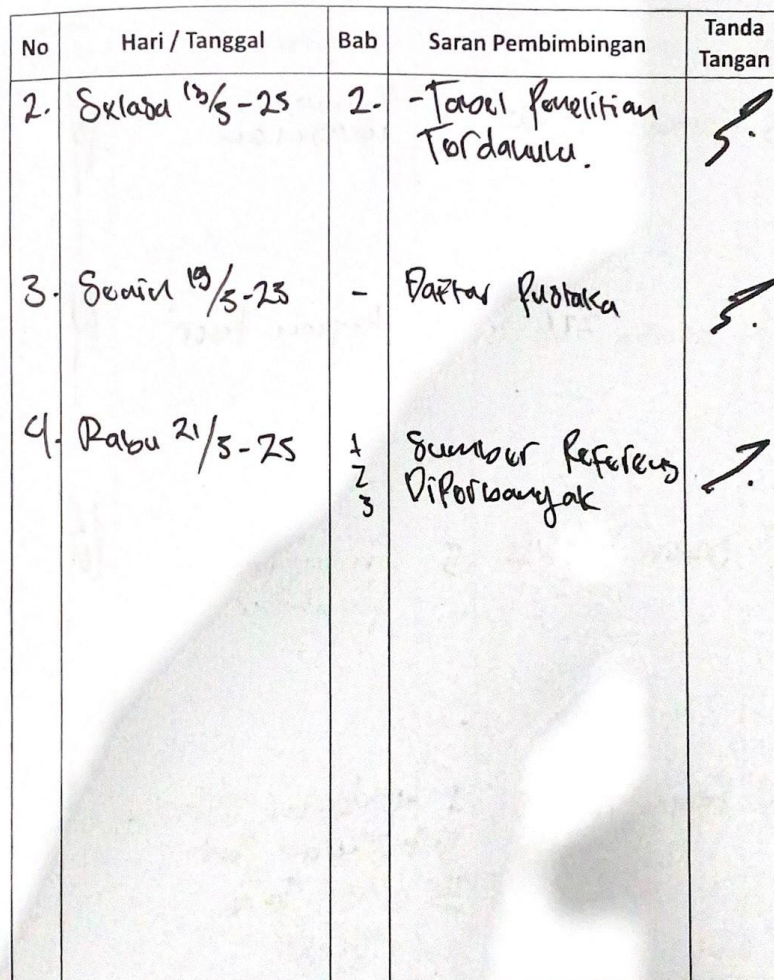 No Hari / Tanggal Bab Saran Pembimbingan Tanda Tangan
2. Selasa 13/5-25 2. - Tabel Penelitian
Terdahulu.
3. Senin 19/5-25 - Daftar Pustaka
4. Rabu 21/5-25 1 Sumber Referensi
2 Diperbanyak
3